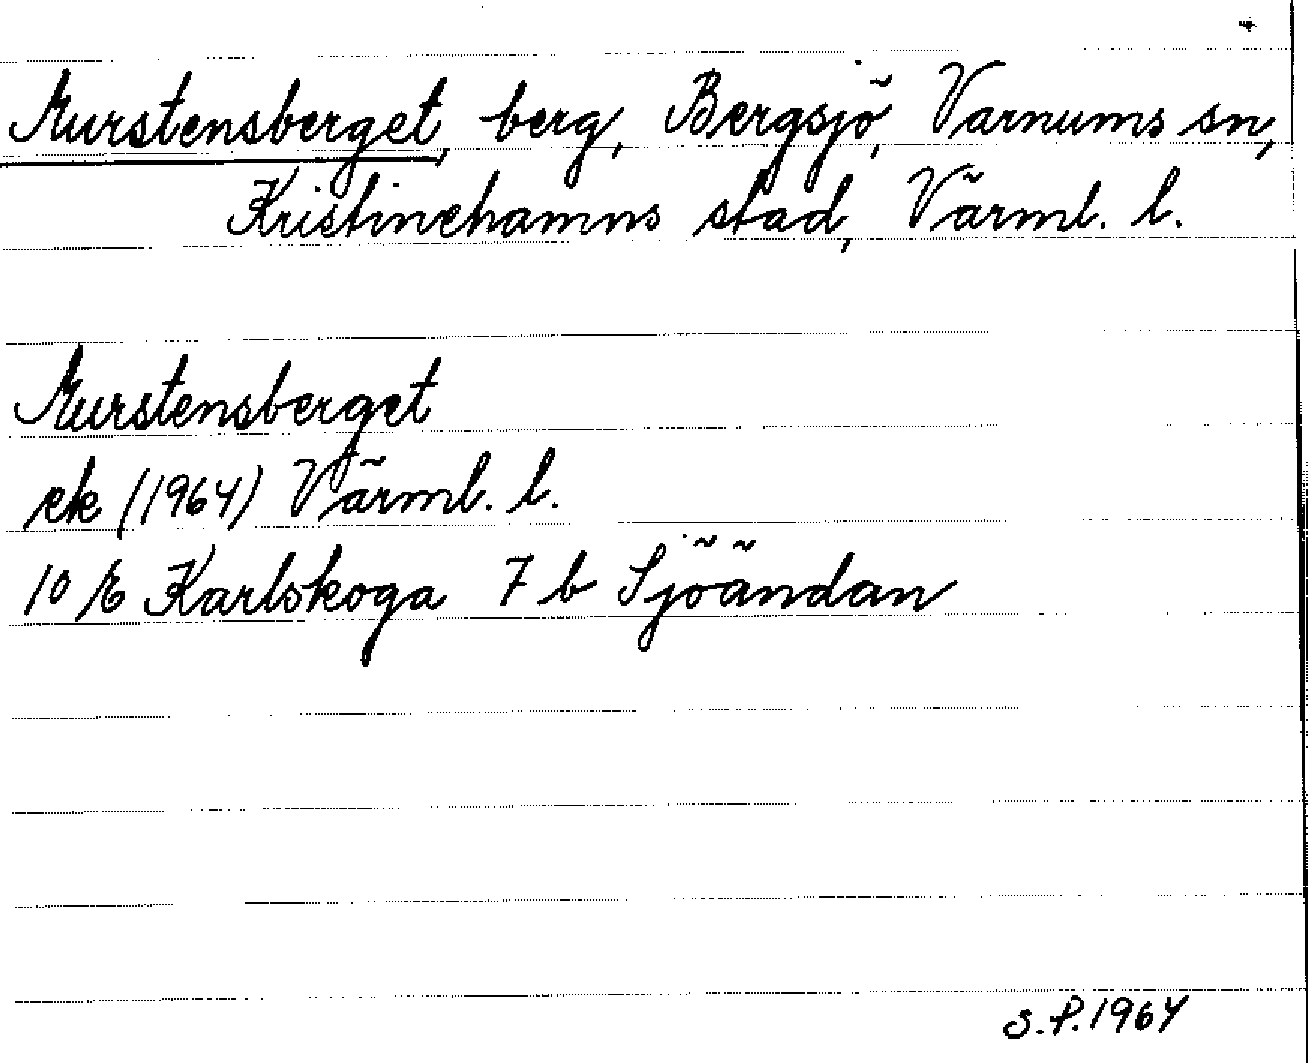 Murstensberget, berg, Bergsjö, Varnums sn,
Kristinehamns stad, Värml. l.
Murstensberget
ek (1964) Värml. l.
10 E Karlskoga 7 b Sjöändan
S.P. 1964